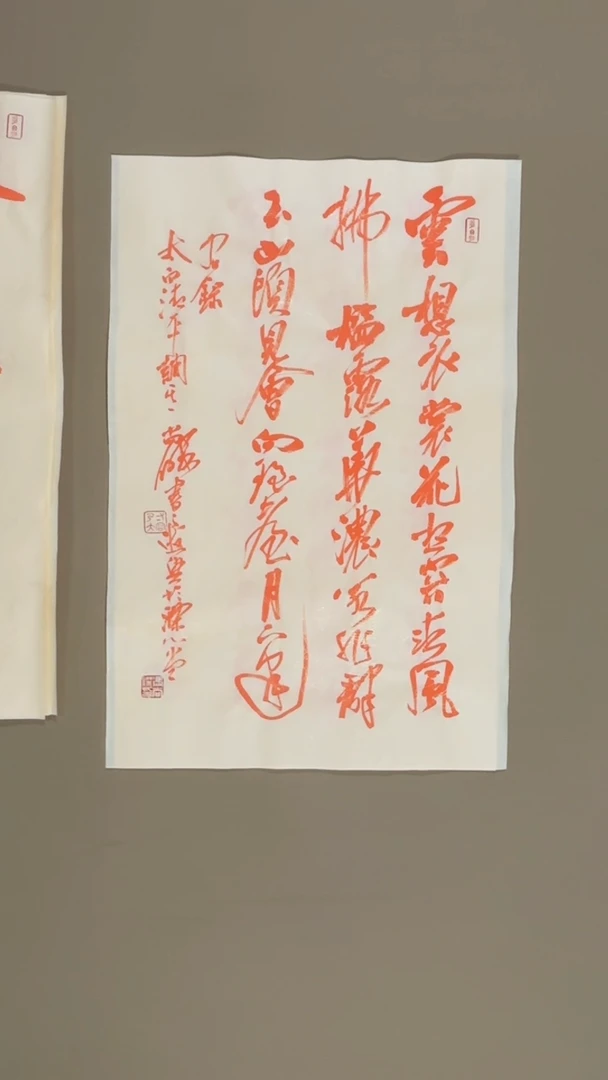 雲想衣裳花想容春風
拂檻露華濃若非群
玉山頭見會向瑤臺月下逢
錄
太白清平調其一 書